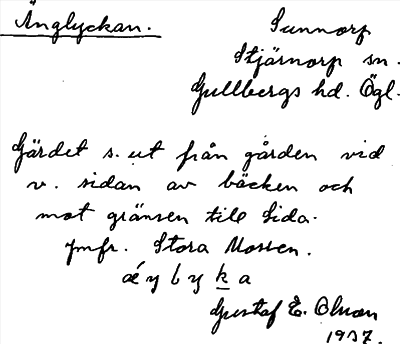 Änglyckan.
Sunnorp
Stjärnorp sn.
Gullbergs hd. Ögl.
Gärdet s. ut från gården vid
v. sidan av bäcken och
mot gränsen till Sida.
Jmfr. Stora Mossen.
Gustaf E. Olson
1937.